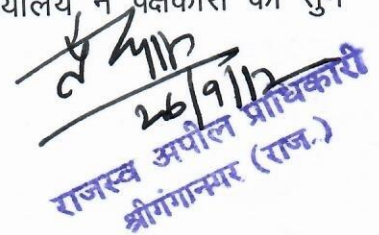 न पक्षकारों को सुन
26/9/12
राजस्व अपील प्राधिकारी
श्रीगंगानगर (राज.)